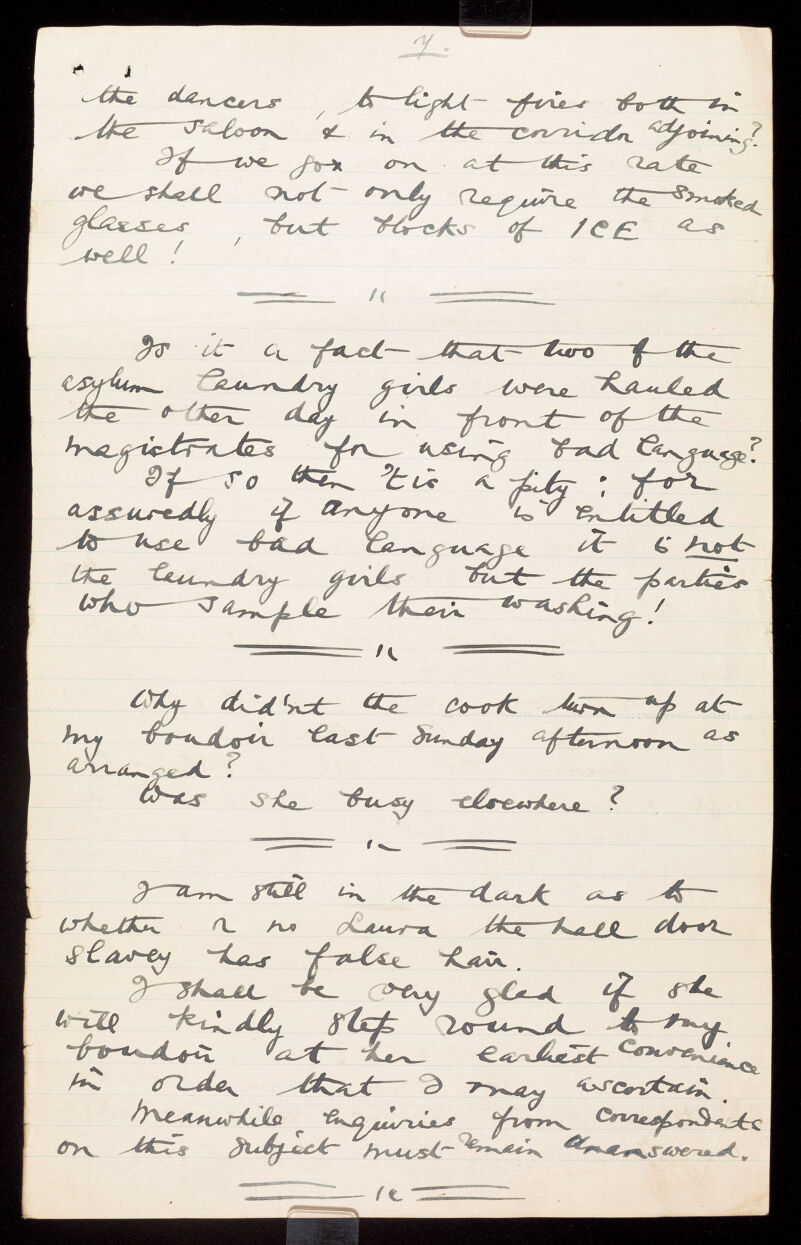 7.
the dancers, to light fires both in
the saloon & in the corridor adjoining?
If we go on at this rate
we shall not only require the smoked
glasses, but blocks of ICE as
well!
Is it a fact that two of the
asylum laundry girls were hauled
the other day in front of the
magistrates for using bad language?
If so then 'tis a pity; for
assuredly if anyone is entitled
to use bad language it is not
the laundry girls but the parties
who sample their washing!
Why did'nt the cook turn up at
my boudoir last Sunday afternoon as
arranged?
Was she busy elsewhere?
I am still in the dark as to
whether or no Laura the hall door
slavey has false hair.
I shall be very glad if she
will kindly step round to my
boudoir at her earliest convenience
in order that I may ascertain.
Meanwhile enquiries from correspondents
on this subject must remain unanswered.